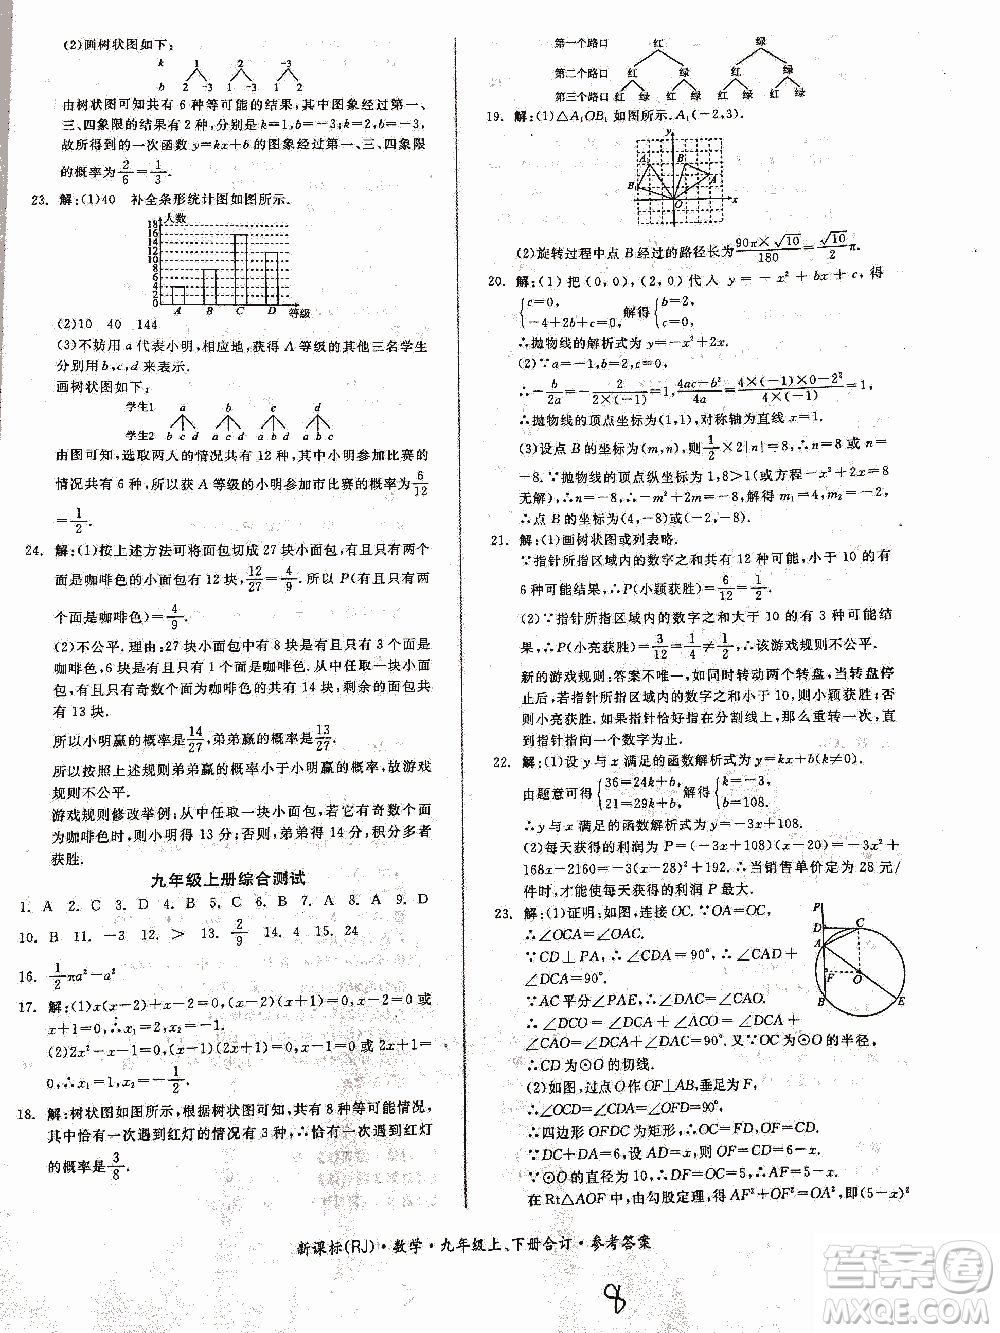 (2)画树状图如下:
k 1 2 -3
b 2 -3 1 -3 1 2
由树状图可知共有 6 种等可能的结果,其中图象经过第一、
三、四象限的结果有 2 种,分别是k=1,b=-3;k=2,b=-3,
故所得到的一次函数 y=kx+b 的图象经过第一、三、四象限
的概率为2/6=1/3.
23. 解:(1)40 补全条形统计图如图所示.
人数
18
16
14
12
10
8
6
4
2
0
A B C D 等级
(2)10 40 144
(3)不妨用 a 代表小明,相应地,获得 A 等级的其他三名学生
分别用 b,c,d 来表示.
画树状图如下:
学生1 a b c d
学生2 b c d a c d a b d a b c
由图可知,选取两人的情况共有 12 种,其中小明参加比赛的
情况共有 6 种,所以获 A 等级的小明参加市比赛的概率为6/12
=1/2.
24. 解:(1)按上述方法可将面包切成 27 块小面包,有且只有两个
面是咖啡色的小面包有 12 块,12/27=4/9. 所以 P(有且只有两
个面是咖啡色)=4/9.
(2)不公平. 理由:27 块小面包中有 8 块是有且只有 3 个面是
咖啡色,6 块是有且只有 1 个面是咖啡色. 从中任取一块小面
包,有且只有奇数个面为咖啡色的共有 14 块,剩余的面包共
有 13 块.
所以小明赢的概率是14/27,弟弟赢的概率是13/27.
所以按照上述规则弟弟赢的概率小于小明赢的概率,故游戏
规则不公平.
游戏规则修改举例:从中任取一块小面包,若它有奇数个面
为咖啡色时,则小明得 13 分;否则,弟弟得 14 分,积分多者
获胜.
九年级上册综合测试
1. A 2. C 3. D 4. D 5. D 6. A 7. C 8. A 9. D
10. B 11. -3 12. > 13. 2/9 14. 4 15. 24
16. 1/2πa²-a²
17. 解:(1)x(x-2)+x-2=0,(x-2)(x+1)=0,x-2=0 或
x+1=0,∴x₁=2,x₂=-1.
(2)2x²-x-1=0,(x-1)(2x+1)=0,x-1=0 或 2x+1
=0,∴x₁=1,x₂=-1/2.
18. 解:树状图如图所示,根据树状图可知,共有 8 种等可能情况,
其中恰有一次遇到红灯的情况有 3 种,∴恰有一次遇到红灯
的概率是3/8.
第一个路口 红 绿
第二个路口 红 绿 红 绿
第三个路口 红 绿 红 绿 红 绿 红 绿
19. 解:(1)△A₁OB₁ 如图所示. A₁(-2,3).
y A₁ B A B₁ O x
(2)旋转过程中点 B 经过的路径长为90π×√10/180=√10/2π.
20. 解:(1) 把 (0,0),(2,0) 代入 y = -x² + bx + c, 得
{c=0, -4+2b+c=0, 解得{b=2, c=0,
∴抛物线的解析式为 y=-x²+2x.
(2)∵a=-1,b=2,c=0.
∴-b/2a=-2/2×(-1)=1,4ac-b²/4a=4×(-1)×0-2²/4×(-1)=1,
∴抛物线的顶点坐标为(1,1),对称轴为直线 x=1.
(3)设点 B 的坐标为(m,n),则1/2×2|n|=8,∴n=8 或 n=
-8.∵抛物线的顶点纵坐标为 1,8>1(或方程-x²+2x=8
无解),∴n=-8,∴-m²+2m=-8,解得 m₁=4,m₂=-2,
∴点 B 的坐标为(4,-8)或(-2,-8).
21. 解:(1)画树状图或列表略.
∵指针所指区域内的数字之和共有 12 种可能,小于 10 的有
6 种可能结果,∴P(小颖获胜)=6/12=1/2.
(2)∵指针所指区域内的数字之和大于 10 的有 3 种可能结
果,∴P(小亮获胜)=3/12=1/4≠1/2,∴该游戏规则不公平.
新的游戏规则:答案不唯一,如同时转动两个转盘,当转盘停
止后,若指针所指区域内的数字之和小于 10,则小颖获胜,否
则小亮获胜. 如果指针恰好在分割线上,那么重转一次,直
到指针指向一个数字为止.
22. 解:(1)设 y 与 x 满足的函数解析式为 y=kx+b(k≠0),
由题意可得{36=24k+b, 21=29k+b,解得{k=-3, b=108.
∴y 与 x 满足的函数解析式为 y=-3x+108.
(2)每天获得的利润为 P=(-3x+108)(x-20)=-3x²+
168x-2160=-3(x-28)²+192.∴当销售单价定为 28 元/
件时,才能使每天获得的利润 P 最大.
23. 解:(1)证明:如图,连接 OC.∵OA=OC,
∴∠OCA=∠OAC.
∵CD⊥PA,∴∠CDA=90°,∴∠CAD+
∠DCA=90°.
∵AC平分∠PAE,∴∠DAC=∠CAO,
∴∠DCO=∠DCA+∠ACO=∠DCA+
∠CAO=∠DCA+∠DAC=90°.
∵OC为⊙O 的半径,
∴CD为⊙O 的切线.
P D C A F O B E
(2)如图,过点 O作 OF⊥AB,垂足为 F,
∴∠OCD=∠CDF=∠OFD=90°,
∴四边形 OFDC 为矩形,∴OC=FD,OF=CD.
∵DC+DA=6,设 AD=x,则OF=CD=6-x,
∵⊙O 的直径为 10,∴DF=OC=5,∴AF=5-x,
在 Rt△AOF中,由勾股定理,得 AF²+OF²=OA²,即(5-x)²
新课标(RJ)·数学·九年级上、下册合订·参考答案
8
答案圈
MXQE.COM